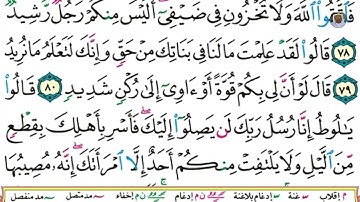 فَٱتَّقُوا۟ ٱللَّهَ وَلَا تُخْزُونِ فِى ضَيْفِىٓ أَلَيْسَ مِنكُمْ رَجُلٌ رَّشِيدٌ
٧٨ قَالُوا۟ لَقَدْ عَلِمْتَ مَا لَنَا فِى بَنَاتِكَ مِنْ حَقٍّ وَإِنَّكَ لَتَعْلَمُ مَا نُرِيدُ
٧٩ قَالَ لَوْ أَنَّ لِى بِكُمْ قُوَّةً أَوْ ءَاوِىٓ إِلَىٰ رُكْنٍ شَدِيدٍ ٨٠ قَالُوا۟
يَـٰلُوطُ إِنَّا رُسُلُ رَبِّكَ لَن يَصِلُوٓا۟ إِلَيْكَ ۖ فَأَسْرِ بِأَهْلِكَ بِقِطْعٍ
مِّنَ ٱلَّيْلِ وَلَا يَلْتَفِتْ مِنكُمْ أَحَدٌ إِلَّا ٱمْرَأَتَكَ ۖ إِنَّهُۥ مُصِيبُهَا
م إقلاب غنة إدغام بلاغنة ن م إدغام ن م إخفاء مد متصل مد منفصل